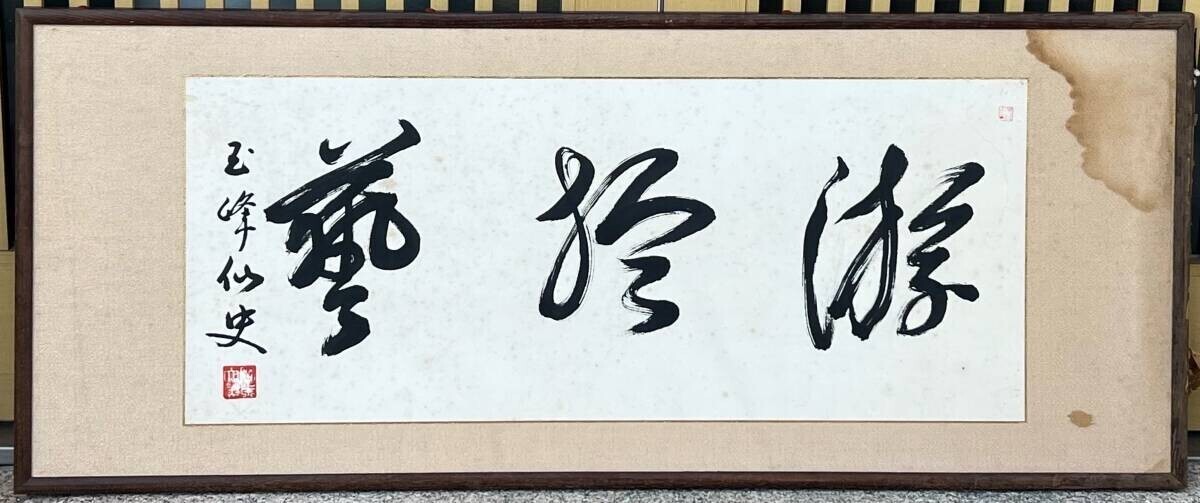 游於藝
玉峰仙史